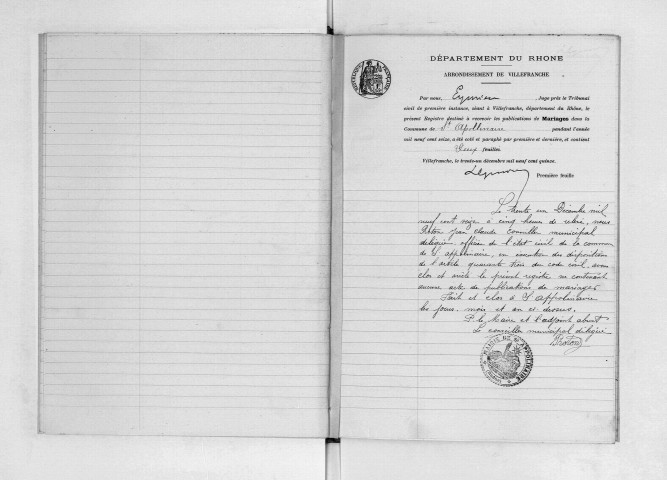 DÉPARTEMENT DU RHONE
ARRONDISSEMENT DE VILLEFRANCHE
Par nous, Eymin Juge près le Tribunal
civil de première instance, séant à Villefranche, département du Rhône, le
présent Registre destiné à recevoir les publications de Mariages dans la
Commune de St Apollinaire pendant l'année
mil neuf cent seize, a été coté et paraphé par première et dernière, et contient
Deux feuilles.
Villefranche, le trente-un décembre mil neuf cent quinze.
Première feuille
Le trente un Décembre mil
neuf cent seize à cinq heures de relevée, nous
Jean Claude Conseiller municipal
délégué, officier de l'état civil de la commune
de St appolinaire, en exécution des dispositions
de l'article quarante trois du code civil, avons
clos et arrêté le présent registre ne contenant
aucun acte de publications de mariages
Fait et clos à St Appolinaire
les jours, mois et an ci dessus.
P. le Maire et l'adjoint absent
Le conseiller municipal délégué
MAIRIE DE ST APPOLINAIRE